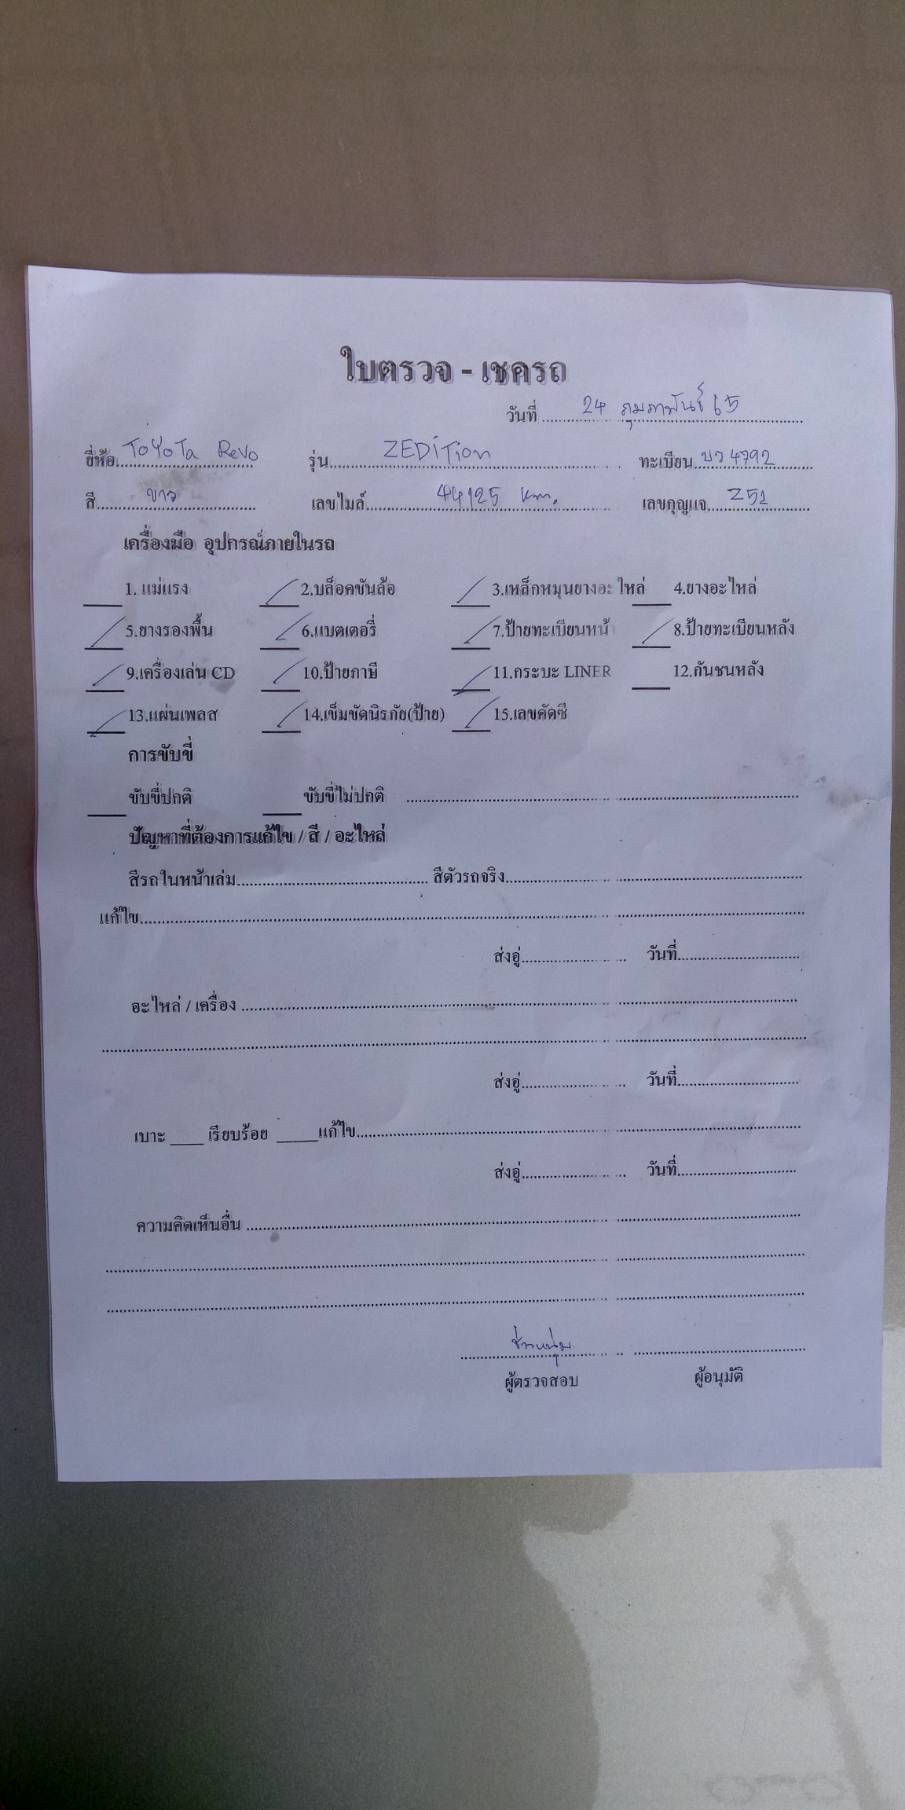 ใบตรวจ - เชครถ
วันที่ 24 กุมภาพันธ์ 65
ยี่ห้อ ToYoTa Revo รุ่น ZEDiTion ทะเบียน บว 4792
สี ขาว เลขไมล์ 44125 km. เลขกุญแจ Z51
เครื่องมือ อุปกรณ์ภายในรถ
1. แม่แรง / 2.บล็อคขันล้อ / 3.เหล็กหมุนยางอะไหล่ 4.ยางอะไหล่
/ 5.ยางรองพื้น / 6.แบตเตอรี่ / 7.ป้ายทะเบียนหน้า / 8.ป้ายทะเบียนหลัง
/ 9.เครื่องเล่น CD / 10.ป้ายภาษี / 11.กระบะ LINER 12.กันชนหลัง
/ 13.แผ่นเพลส / 14.เข็มขัดนิรภัย(ป้าย) / 15.เลขคัดซี
การขับขี่
ขับขี่ปกติ ขับขี่ไม่ปกติ
ปัญหาที่ต้องการแก้ไข / สี / อะไหล่
สีรถในหน้าเล่ม สีตัวรถจริง
แก้ไข
ส่งอู่ วันที่
อะไหล่ / เครื่อง
ส่งอู่ วันที่
เบาะ เรียบร้อย แก้ไข
ส่งอู่ วันที่
ความคิดเห็นอื่น
ผู้ตรวจสอบ ผู้อนุมัติ